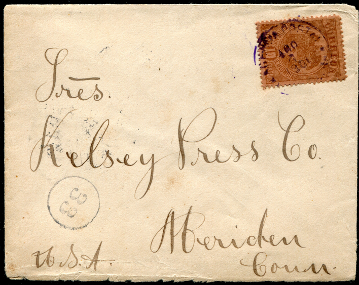 Sres.
Kelsey Press Co.
33
Meriden
U.S.A.
Conn.